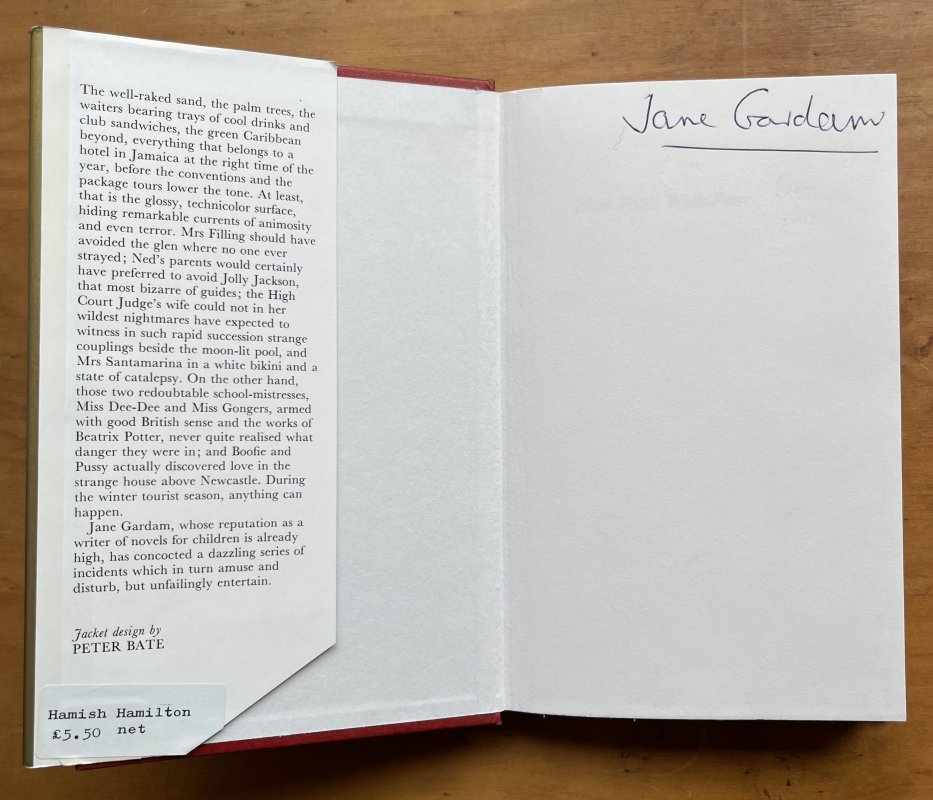 The well-raked sand, the palm trees, the
waiters bearing trays of cool drinks and
club sandwiches, the green Caribbean
beyond, everything that belongs to a
hotel in Jamaica at the right time of the
year, before the conventions and the
package tours lower the tone. At least,
that is the glossy, technicolor surface,
hiding remarkable currents of animosity
and even terror. Mrs Filling should have
avoided the glen where no one ever
strayed; Ned's parents would certainly
have preferred to avoid Jolly Jackson,
that most bizarre of guides; the High
Court Judge's wife could not in her
wildest nightmares have expected to
witness in such rapid succession strange
couplings beside the moon-lit pool, and
Mrs Santamarina in a white bikini and a
state of catalepsy. On the other hand,
those two redoubtable school-mistresses,
Miss Dee-Dee and Miss Gongers, armed
with good British sense and the works of
Beatrix Potter, never quite realised what
danger they were in; and Boofie and
Pussy actually discovered love in the
strange house above Newcastle. During
the winter tourist season, anything can
happen.
Jane Gardam, whose reputation as a
writer of novels for children is already
high, has concocted a dazzling series of
incidents which in turn amuse and
disturb, but unfailingly entertain.
Jacket design by
PETER BATE
Hamish Hamilton
£5.50 net
Jane Gardam